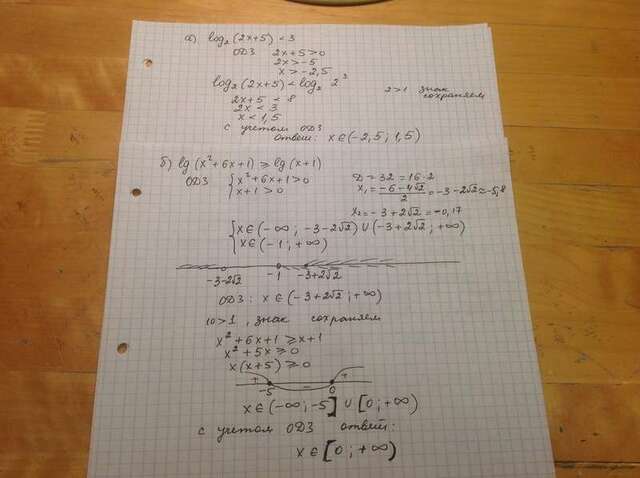 а) log₂(2x+5) < 3
ОДЗ 2x+5>0
2x>-5
x>-2,5
log₂(2x+5) < log₂ 2³ 2>1 знак сохраняем
2x+5 < 8
2x < 3
x < 1,5
с учетом ОДЗ
ответ: x∈(-2,5; 1,5)
б) lg(x²+6x+1) ⩾ lg(x+1)
ОДЗ { x²+6x+1>0
x+1>0
D=32=16·2
x₁= (-6-4√2)/2 =-3-2√2≈-5,8
x₂=-3+2√2=-0,17
{ x∈(-∞; -3-2√2)∪(-3+2√2; +∞)
x∈(-1; +∞)
-3-2√2 -1 -3+2√2
ОДЗ: x∈(-3+2√2; +∞)
10>1, знак сохраняем
x²+6x+1 ⩾ x+1
x²+5x ⩾ 0
x(x+5) ⩾ 0
+ - +
-5 0
x∈(-∞; -5] ∪ [0; +∞)
с учетом ОДЗ ответ:
x∈[0; +∞)